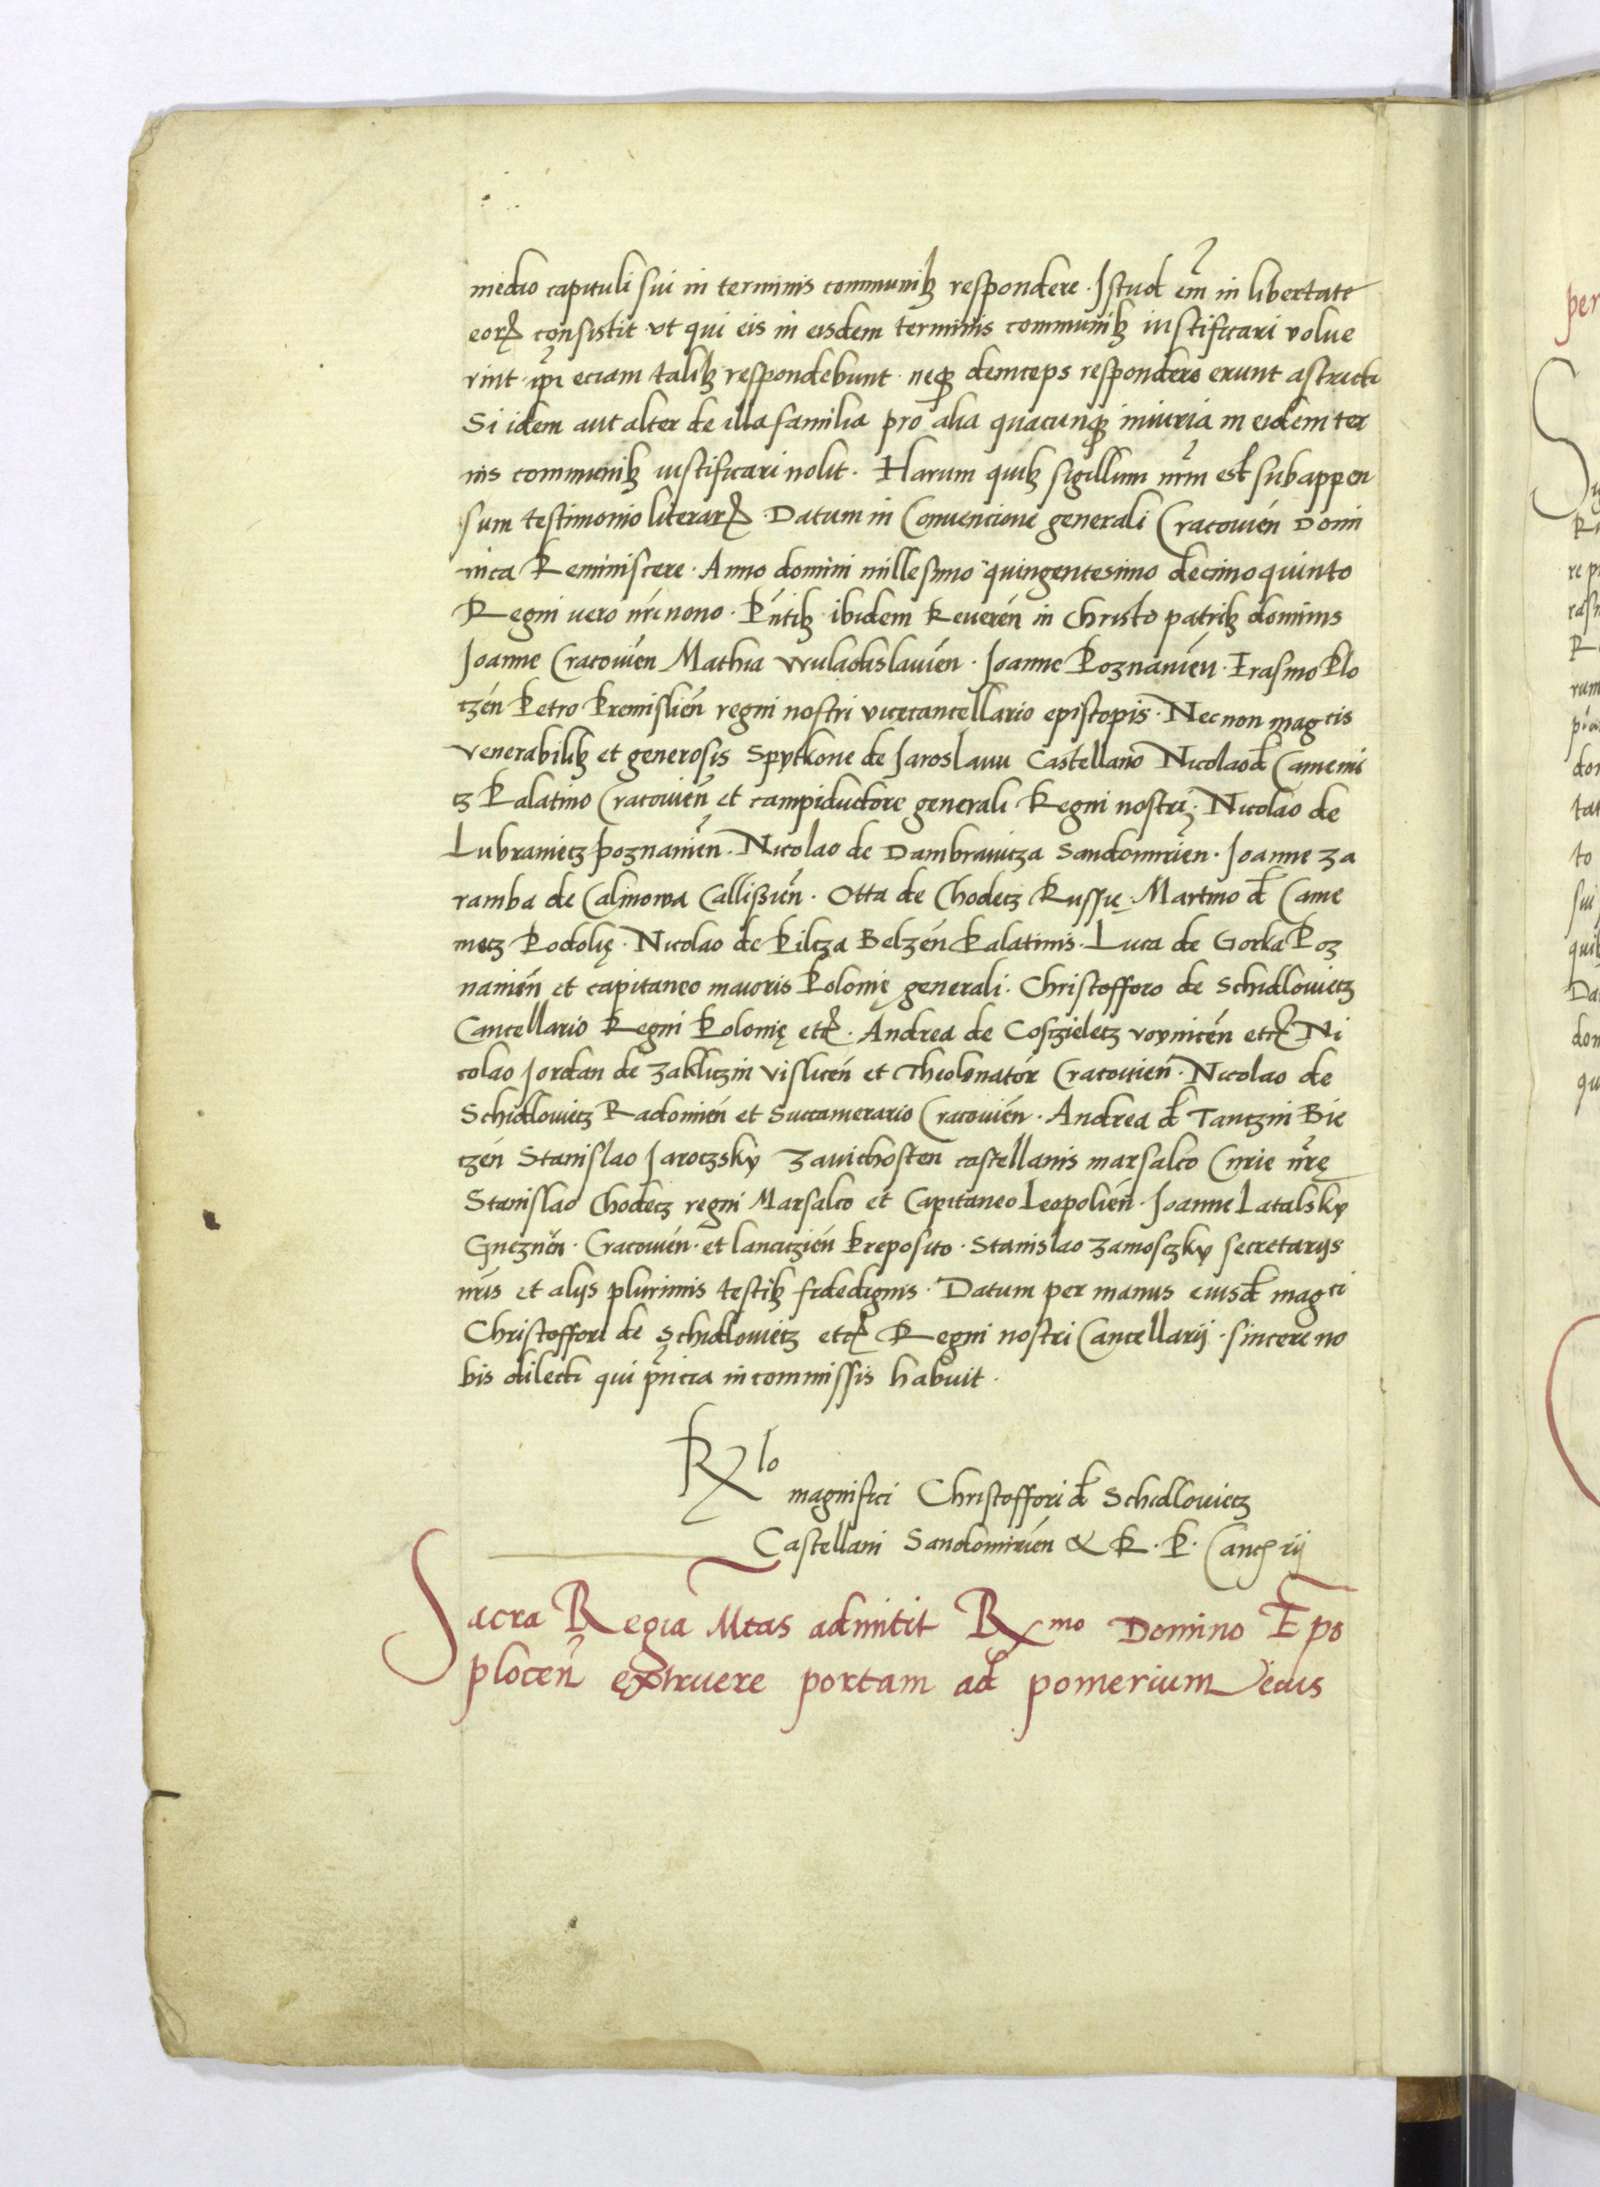 medio capituli sui in terminis communibꝫ respondere · Istud em̃ in libertate
eoꝝ consistit vt qui eis in eisdem terminis communibꝫ iustificari volue
rint · ip̃i eciam talibꝫ respondebunt · neqꝫ deinceps respondere erunt astricti
Si idem aut alter de illa familia pro alia quacunqꝫ iniuria in eisdem ter
nis communibꝫ iustificari nolit · Harum quibꝫ sigillum nr̃m est subappen
sum testimonio literarꝝ · Datum in Conuencione generali Cracouień Domi
nica Reminiscere · Anno domini millesimo quingentesimo decimoquinto
Regni uero nr̃i nono · Pńtibꝫ ibidem Reuereń in Christo patribꝫ dominis
Joanne Cracouień Mathia Wuladislauień · Joanne Poznanień · Erasmo Plo
czeń Petro Premislień regni nostri vicecancellario episcopis · Necnon magcis
venerabilibꝫ et generosis Spytkone de Jaroslauu Castellano Nicolao d̃ Cameni
cz Palatino Cracouień et campiductore generali Regni nostri · Nicolao de
Lubranietz poznanień · Nicolao de Dambrauicza Sandomirień · Joanne za
ramba de Calinowa Callissień · Otta de Chodecz Russię · Martino d̃ Came
metz Podolię · Nicolao de Pilcza Belzeń Palatinis · Luca de Gorka Poz
nanień et capitaneo maioris Polonię generali · Christofforo de Schidlouietz
Cancellario Regni Polonię etcꝛ · Andrea de Cosczieletz voynicen etcꝛ Ni
colao Jordan de zakliczin visliceń et Theolonatoŕ Cracouień · Nicolao de
Schidlouietz Radomień et Succamerario Cracouień · Andrea d̃ Tanczin Bie
czeń Stanislao Jaroczsky zauichosten castellanis marsalco Curie nr̃ę
Stanislao Chodecz regni Marsalco et Capitaneo Leopolień · Joanne Latalsky
Gnezneń · Cracouień · et lanciczień Preposito · Stanislao zamosczky secretarijs
nr̃is et alijs plurimis testibꝫ fidedignis · Datum per manus eiusd̃ magci
Christoffori de Schidlouietz etcꝛ Regni nostri Cancellarij · sincere no
bis dilecti qui pñcia in commissis habuit ·
Rlo
magnifici Christoffori d̃ Schidlouietz
Castellani Sandomirień & R · P · Cancrij
Sacra Regia Mtas admitit Rmo Domino Epo
plocen̄ extruere portam ad pomerium eius